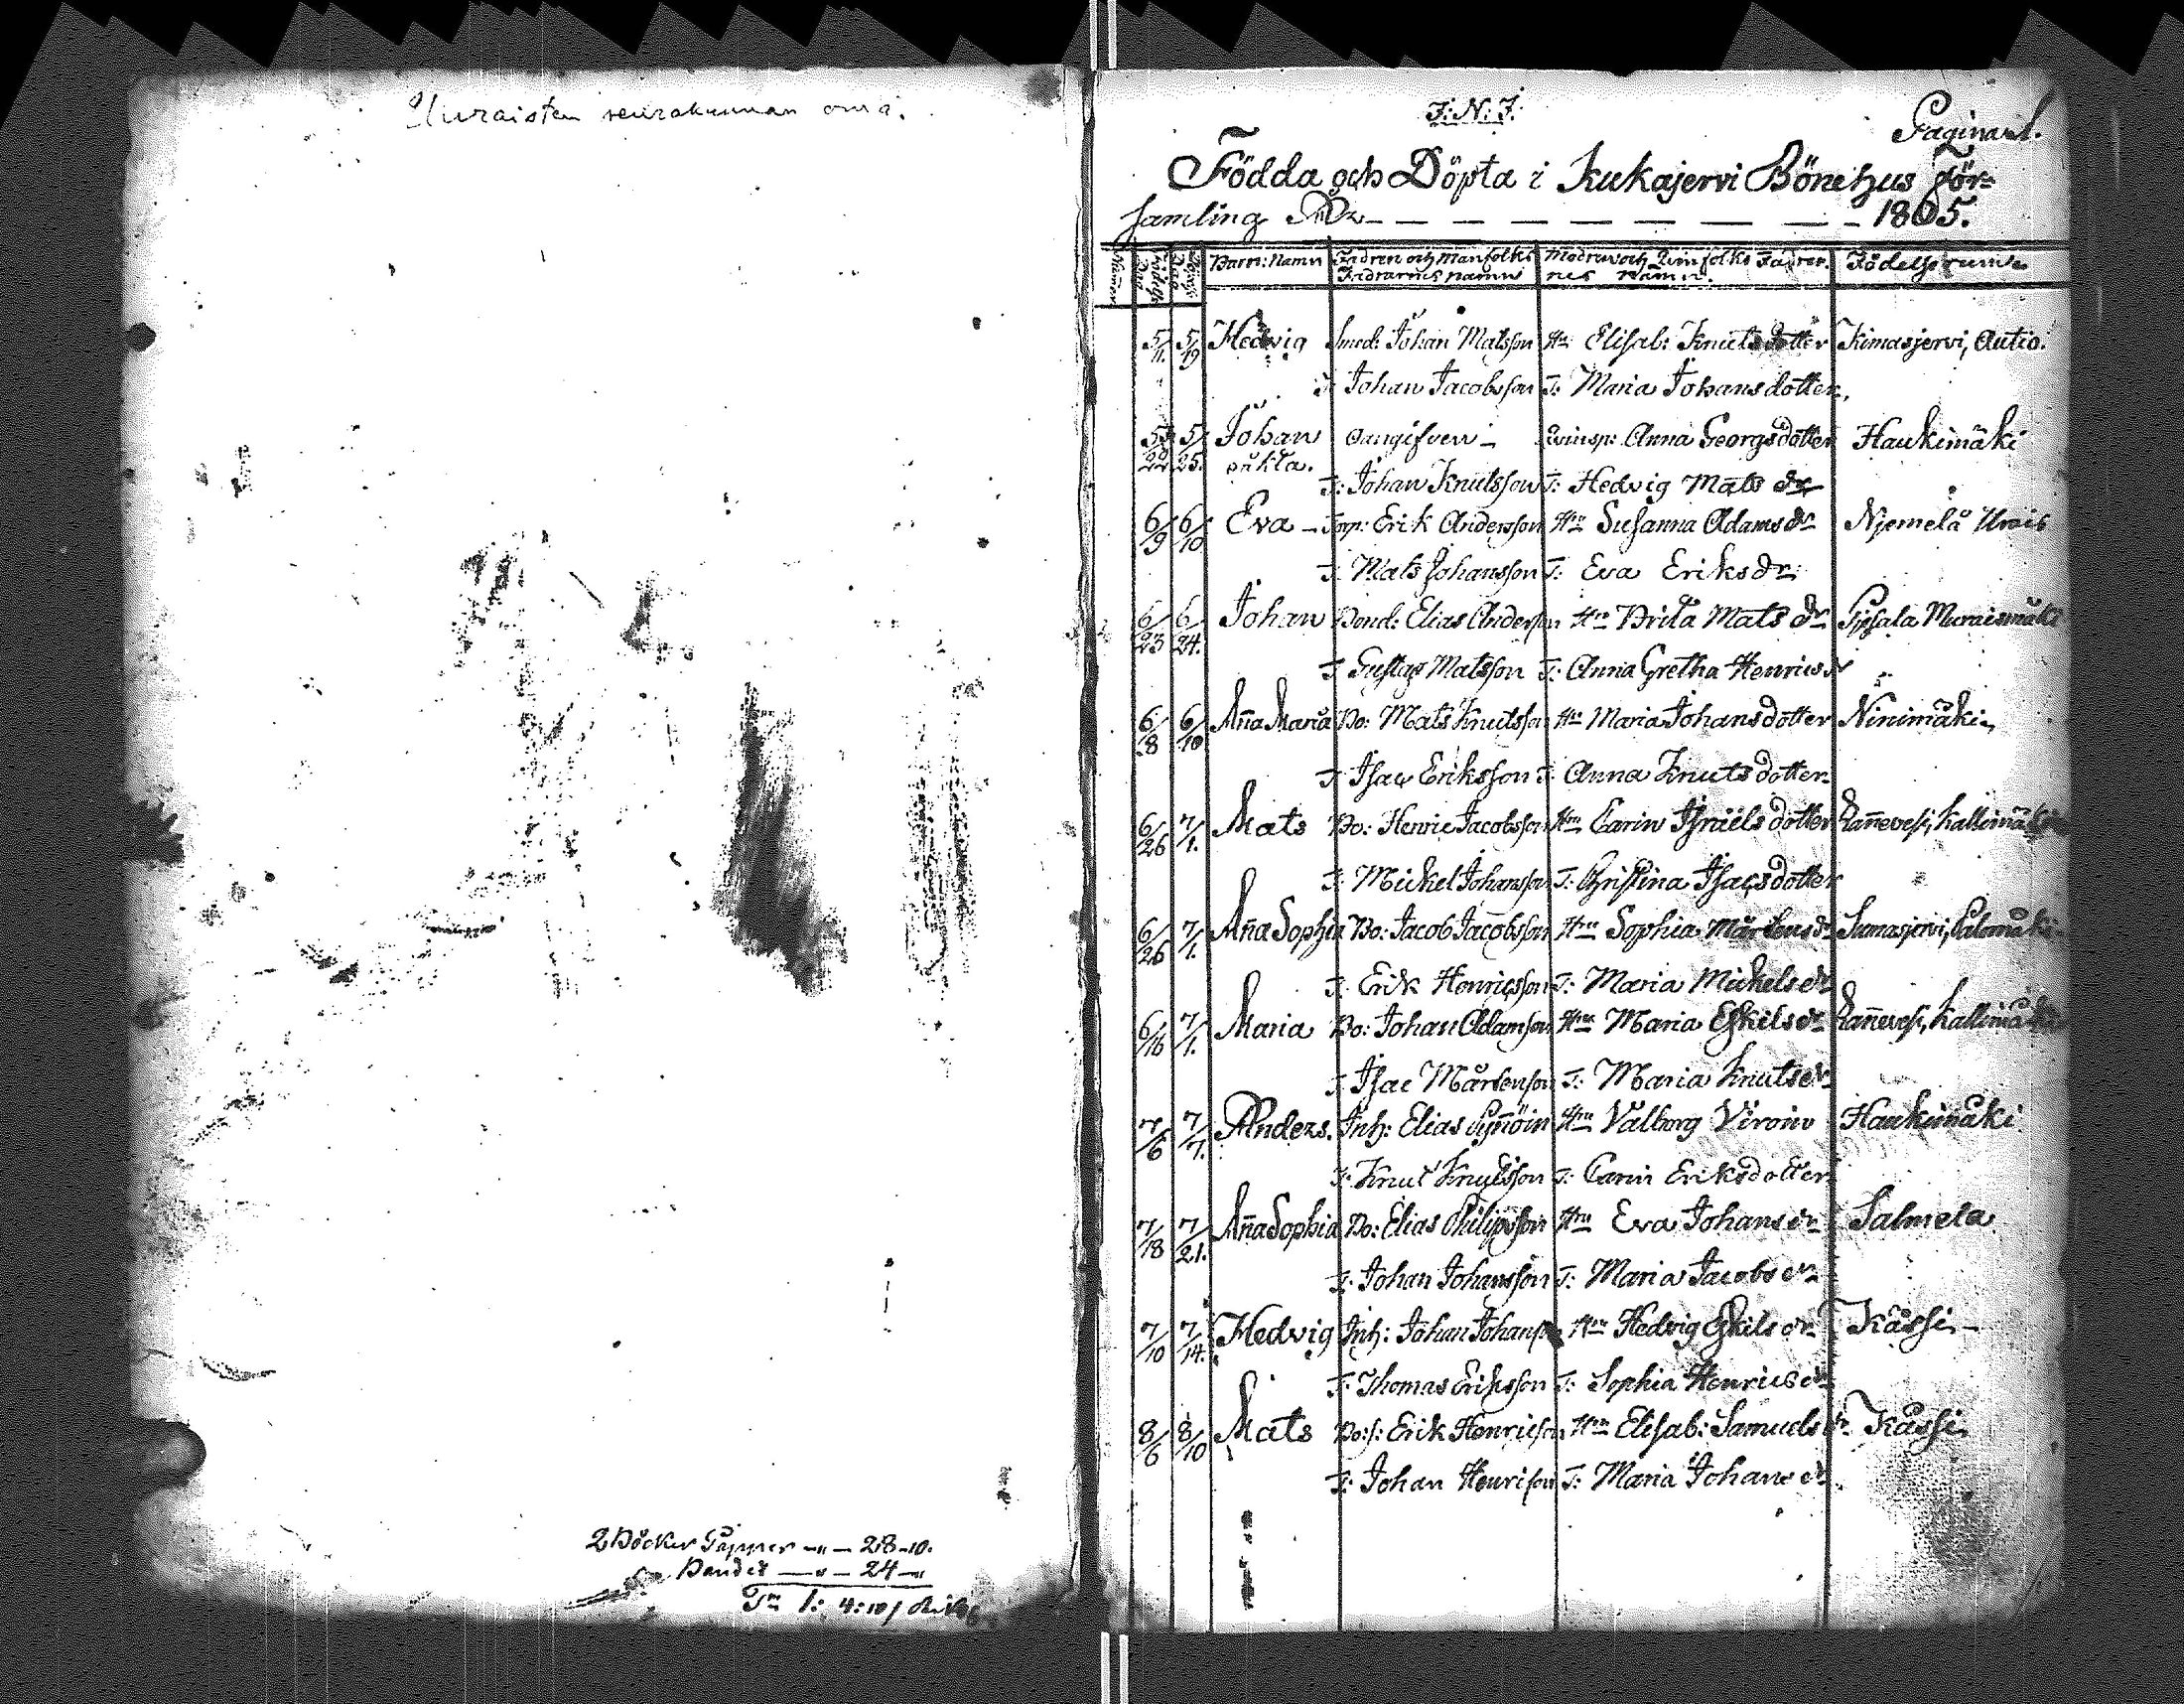 Uuraisten seurakunnan oma.
2 Böcker Papper — 28-10.
Bandet — 24
Sm 1: 4:10
J: N: J:
Pagina 1.
Födda och Döpta i Kukajervi Bönehus För-
samling År — — — — — — — 1805.
Barn: Namn Fadren och Manfolks Modren och Qvinfolks Fadrar- Födelse rum
Fadrarnes namn nes namn.
5/11. 5/19 Hedvig Smed: Johan Matsson Hu Elisab: Knuts dotter Kimasjervi, Autio.
F: Johan Jacobsson F: Maria Johansdotter,
5/22 5/25. Johan oangifven — Qvinsp: Anna Georgsdotter Haukimäki
oäkta.
F: Johan Knutsson F: Hedvig Mats dr
6/9 6/10 Eva — Torp: Erik Andersson Hu Susanna Adams dr Njemelä Urais
F: Mats Johansson F: Eva Eriks dr
6/23 6/24. Johan Bond: Elias Anderson Hu Brita Mats dr Muraismäki
F: Gustaf Matsson F: Anna Gretha Henrics dr
6/8 6/10 Aña Maria Bo: Mats Knutsson Hu Maria Johansdotter Ninimäki
F: Isac Eriksson F: Anna Knutsdotter
6/26 7/1. Mats Bo: Henric Jacobsson Hu Carin Israëls dotter Rañevesi, Kallimäki
F: Mickel Johansson F: Christina Isacsdotter
6/26 7/1. Aña Sophia Bo: Jacob Jacobsson Hu Sophia Mårtens dr Sumasjervi, Palomäki
F: Erik Henricsson F: Maria Mickels dr
6/16 7/1. Maria Bo: Johan Adamson Hu Maria Eskils dr Rañevesi, Kallimäki
F: Isac Mårtenson F: Maria Knuts dr
7/6 7/7. Anders. Inh: Elias Hu Valborg Viroin Haukimäki.
F: Knut Knutsson F: Carin Eriksdotter
7/18 7/21. Aña Sophia Bo: Elias Philipsson Hu Eva Johans dr Salmela
F: Johan Johansson F: Maria Jacobs dr
7/10 7/14. Hedvig Inh: Johan Johansson Hu Hedvig Eskils dr Kässi —
F: Thomas Eriksson F: Sophia Henrics dr
8/6 8/10 Mats Bo:s: Erik Henricson Hu Elisab: Samuels dr Kässi
F: Johan Henrison F: Maria Johans dr